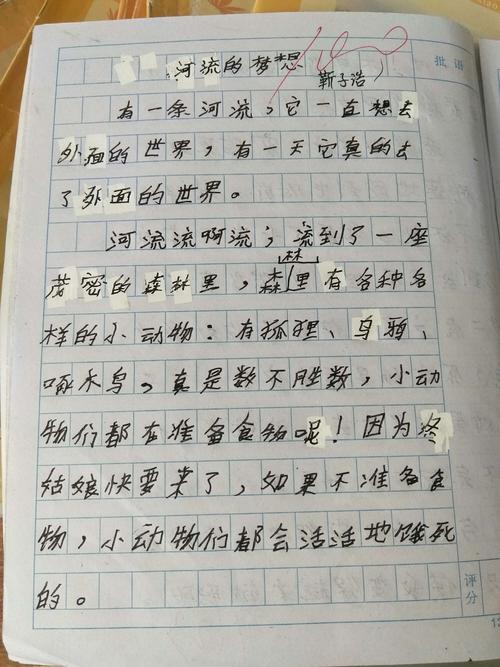 河流的梦想
靳子浩
批语
有一条河流，它一直想去
外面的世界，有一天它真的去
了外面的世界。
河流流啊流；流到了一座
茂密的森林里，森林里有各种各
样的小动物：有狐狸、乌鸦，
啄木鸟。真是数不胜数，小动
物们都在准备食物呢！因为冬
姑娘快要来了，如果不准备食
物，小动物们都会活活地饿死
的。
评分